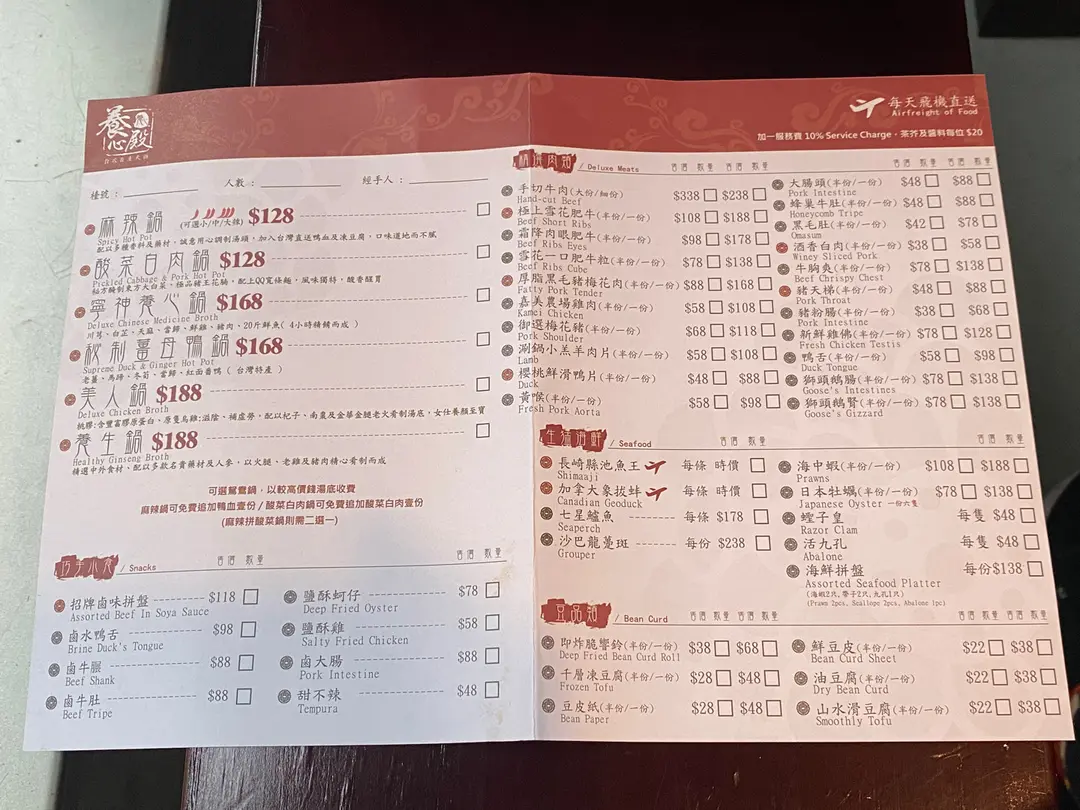 養心殿
每天飛機直送
Airfreight of Food
加一服務費 10% Service Charge，茶芥及醬料每位 $20
檯號：
人數：
經手人：
麻辣鍋 (可選小/中/大辣) $128
Spicy Hot Pot
配以多種香料及藥材，誠意用心調制湯頭，加入台灣直送鴨血及凍豆腐，口味道地而不膩
酸菜白肉鍋 $128
Pickled Cabbage & Pork Hot Pot
秘方醃制東方大白菜、極品豬五花腩，配上QQ寬條麵，風味獨特，酸香醒胃
寧神養心鍋 $168
Deluxe Chinese Medicine Broth
川芎、白芷、天麻、當歸、鮮雞、豬肉、20斤鮮魚( 4小時精餚而成 )
秘制薑母鴨鍋 $168
Supreme Duck & Ginger Hot Pot
老薑、馬蹄、冬荀、當歸、紅面番鴨 ( 台灣特產 )
美人鍋 $188
Deluxe Chicken Broth
桃膠:含豐富膠原蛋白、原隻烏雞:滋陰、補虛勞，配以杞子、南棗及金華金腿老火肴制湯底，女仕養顏至寶
養生鍋 $188
Healthy Ginseng Broth
精選中外食材、配以多款名貴藥材及人參，以火腿，老雞及豬肉精心肴制而成
可選鴛鴦鍋，以較高價錢湯底收費
麻辣鍋可免費追加鴨血壹份 / 酸菜白肉鍋可免費追加酸菜白肉壹份
(麻辣拼酸菜鍋則需二選一)
巧手小食 / Snacks
招牌鹵味拼盤 $118
Assorted Beef In Soya Sauce
鹵水鴨舌 $98
Brine Duck's Tongue
鹵牛𦟌 $88
Beef Shank
鹵牛肚 $88
Beef Tripe
鹽酥蚵仔 $78
Deep Fried Oyster
鹽酥雞 $58
Salty Fried Chicken
鹵大腸 $88
Pork Intestine
甜不辣 $48
Tempura
精選肉類 / Deluxe Meats
手切牛肉(大份/細份) $338 $238
Hand-cut Beef
極上雪花肥牛(半份/一份) $108 $188
Beef Short Ribs
霜降肉眼肥牛(半份/一份) $98 $178
Beef Ribs Eyes
雪花一口肥牛粒(半份/一份) $78 $138
Beef Ribs Cube
厚脂黑毛豬梅花肉(半份/一份) $88 $168
Fatty Pork Tender
嘉美農場雞肉(半份/一份) $58 $108
Kamei Chicken
御選梅花豬(半份/一份) $68 $118
Pork Shoulder
涮鍋小羔羊肉片(半份/一份) $58 $108
Lamb
櫻桃鮮滑鴨片(半份/一份) $48 $88
Duck
黃喉(半份/一份) $58 $98
Fresh Pork Aorta
大腸頭(半份/一份) $48 $88
Pork Intestine
蜂巢牛肚(半份/一份) $48 $88
Honeycomb Tripe
黑毛肚(半份/一份) $42 $78
Omasum
酒香白肉(半份/一份) $38 $58
Winey Sliced Pork
牛胸爽(半份/一份) $78 $138
Beef Chrispy Chest
豬天梯(半份/一份) $48 $88
Pork Throat
豬粉腸(半份/一份) $38 $68
Pork Intestine
新鮮雞佛(半份/一份) $78 $128
Fresh Chicken Testis
鴨舌(半份/一份) $58 $98
Duck Tongue
獅頭鵝腸(半份/一份) $78 $138
Goose's Intestines
獅頭鵝腎(半份/一份) $78 $138
Goose's Gizzard
生猛海鮮 / Seafood
長崎縣池魚王 每條 時價
Shimaaji
加拿大象拔蚌 每條 時價
Canadian Geoduck
七星鱸魚 每條 $178
Seaperch
沙巴龍躉斑 每份 $238
Grouper
海中蝦(半份/一份) $108 $188
Prawns
日本牡蠣(半份/一份) $78 $138
Japanese Oyster 一份六隻
蟶子皇 每隻 $48
Razor Clam
活九孔 每隻 $48
Abalone
海鮮拼盤 每份$138
Assorted Seafood Platter
(海蝦2只, 帶子2只, 九孔1只)
(Prawn 2pcs, Scallops 2pcs, Abalone 1pc)
豆品類 / Bean Curd
即炸脆響鈴(半份/一份) $38 $68
Deep Fried Bean Curd Roll
千層凍豆腐(半份/一份) $28 $48
Frozen Tofu
豆皮紙(半份/一份) $28 $48
Bean Paper
鮮豆皮(半份/一份) $22 $38
Bean Curd Sheet
油豆腐(半份/一份) $22 $38
Dry Bean Curd
山水滑豆腐(半份/一份) $22 $38
Smoothly Tofu